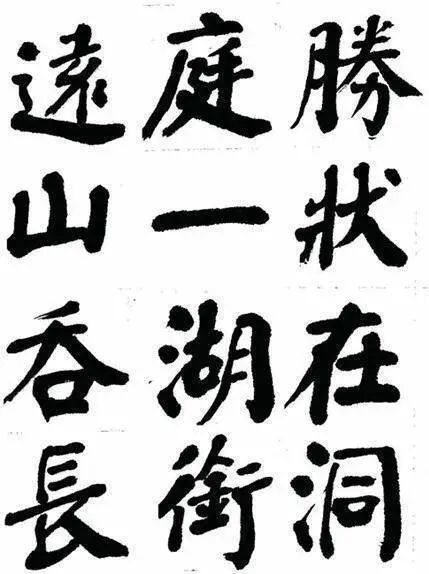 勝狀在洞
庭一湖銜
遠山吞長